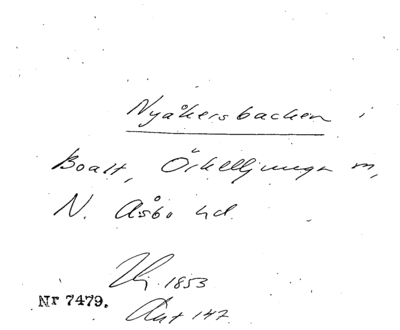 Nyåkersbacken i
Boalt, Örkelljunga m,
N. Åsbo hd.
1853
Nr 7479.
147